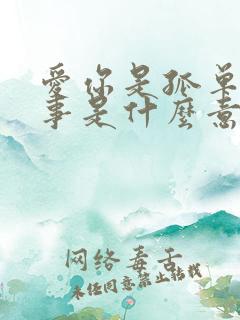 愛你是孤单
事是什麼意
网络毒舌
未经同意禁止转载